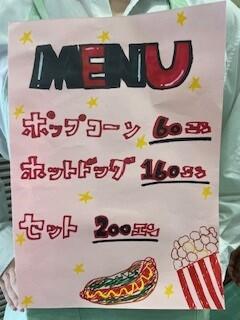 MENU
ポップコーン 60円
ホットドッグ 160円
セット 200円